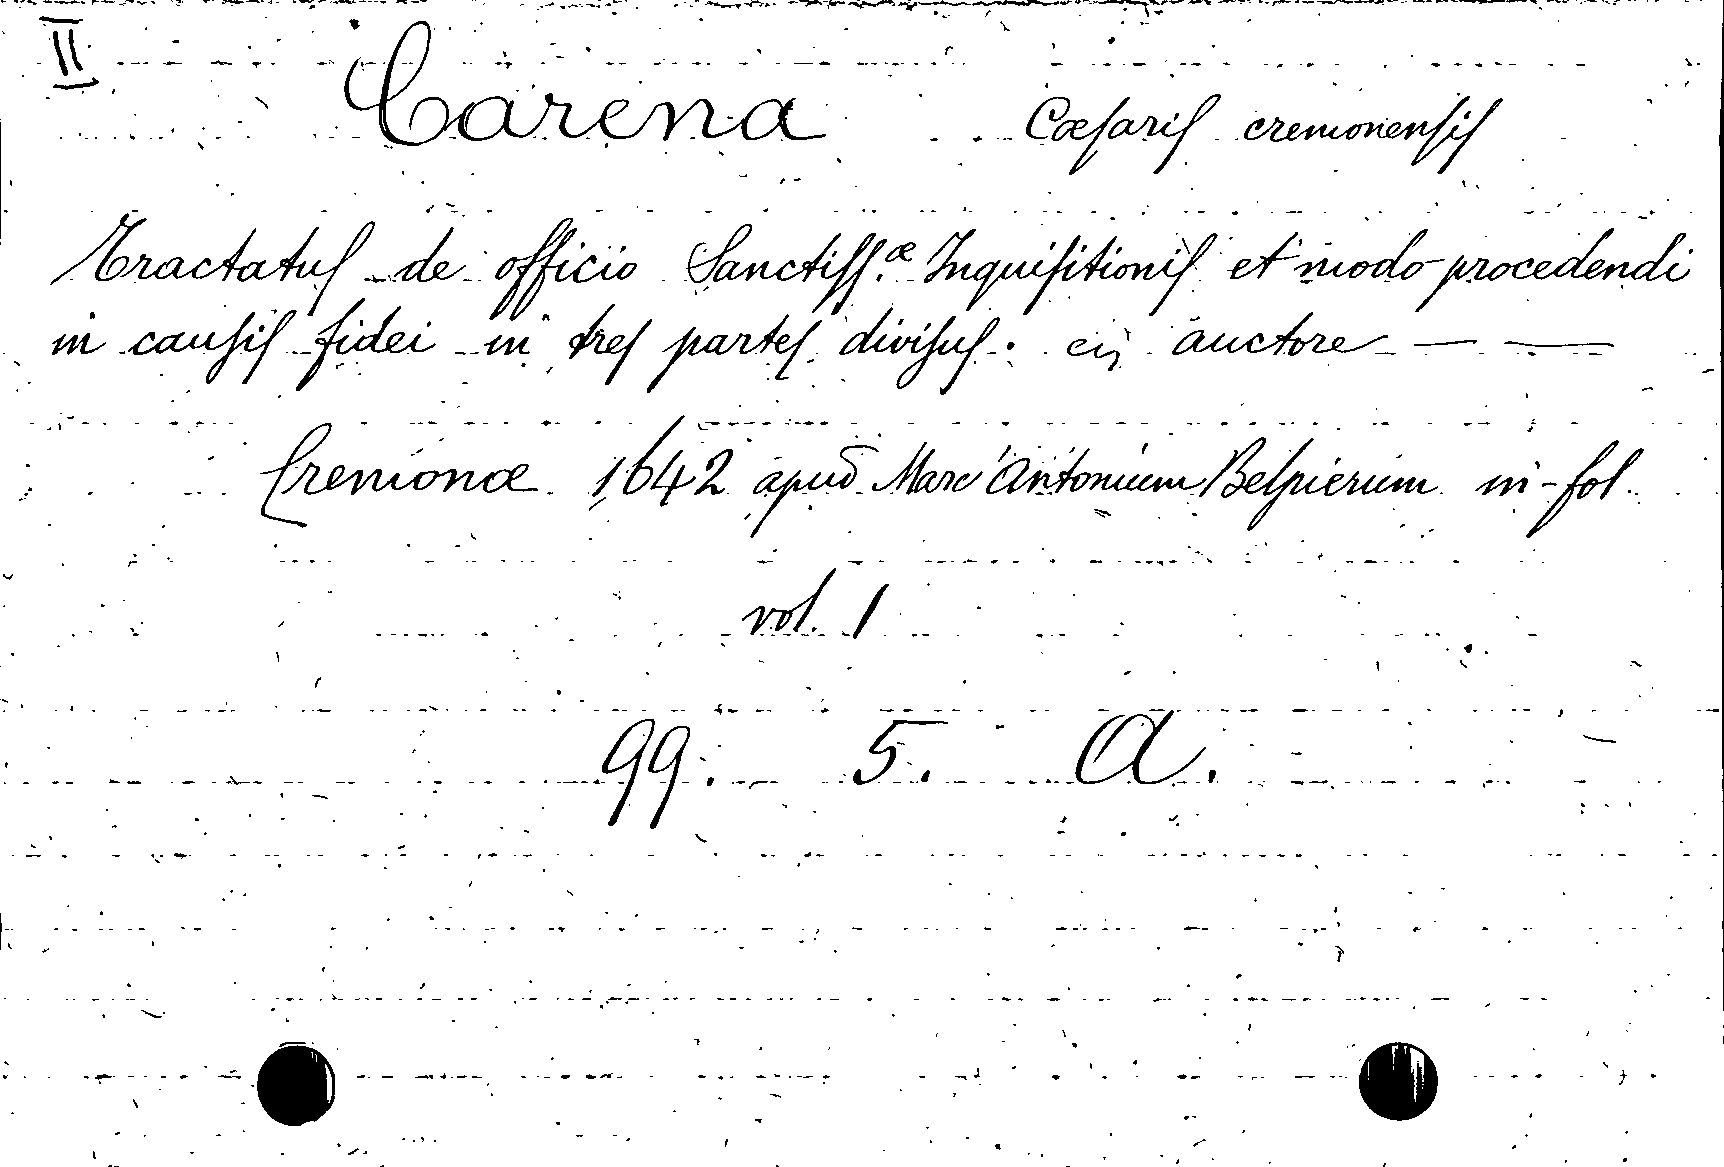 II
Carena Cæsaris cremonensis
Tractatus de officio Sanctiss.æ Inquisitionis et modo procedendi
in causis fidei in tres partes divisus. eij auctore — —
Cremonæ 1642 apud Marc'Antonium Belpierum in-fol
vol. 1
99. 5. A.